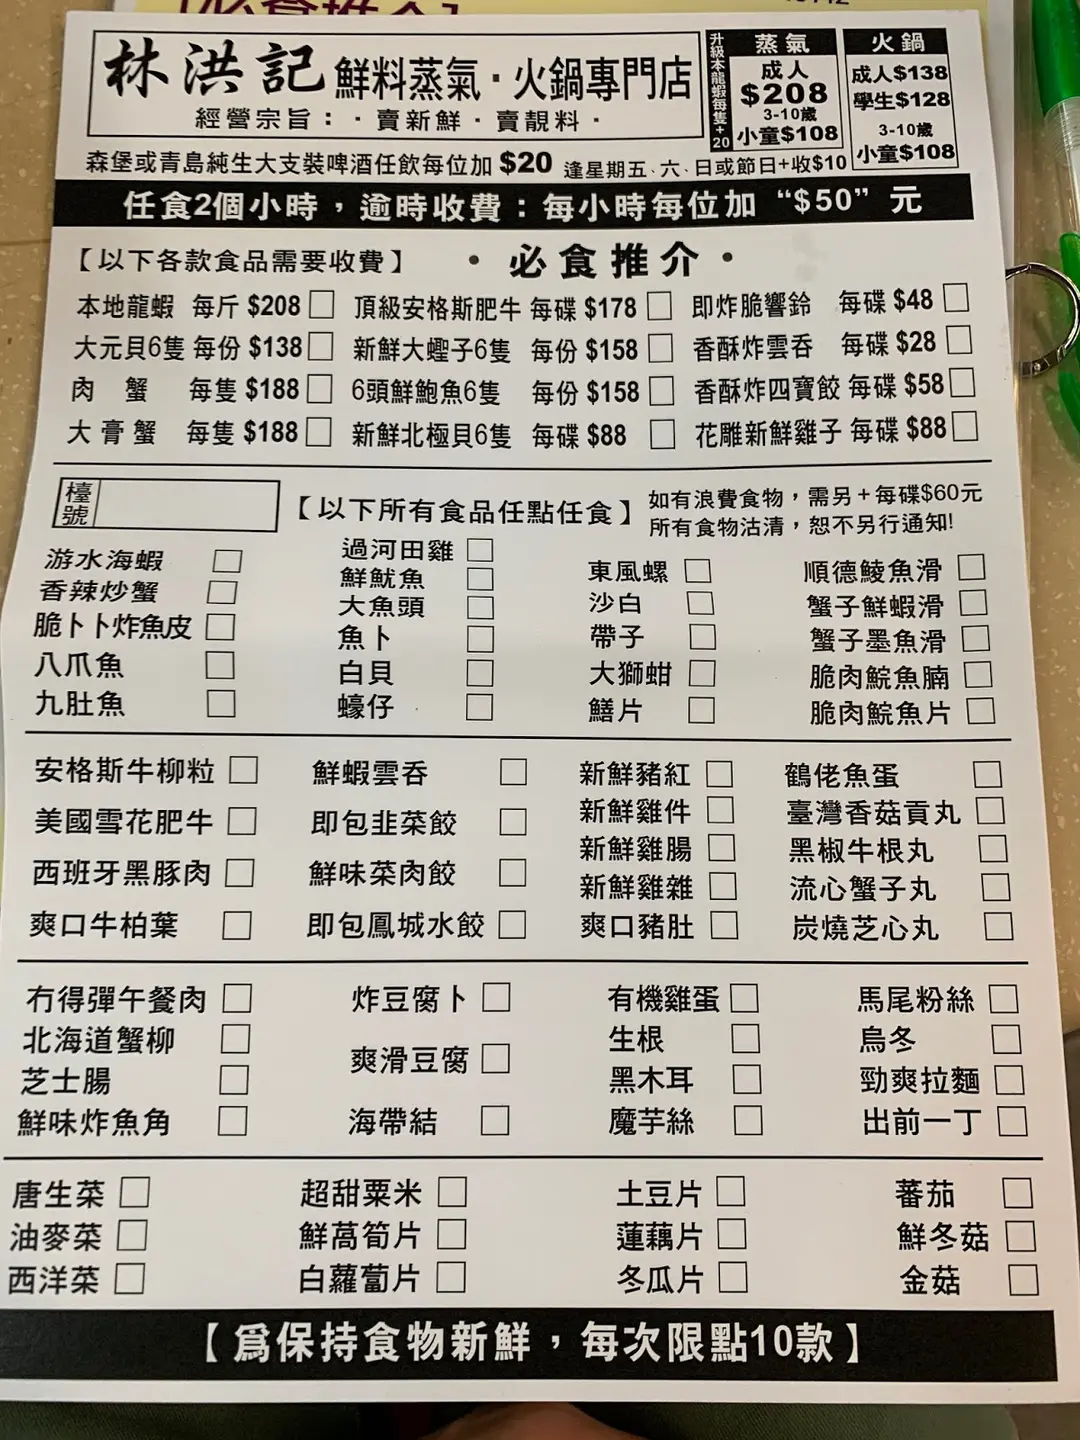 林洪記 鮮料蒸氣·火鍋專門店
經營宗旨：·賣新鮮·賣靚料·
升級本龍蝦每隻+20
蒸氣
成人
$208
3-10歲
小童$108
火鍋
成人$138
學生$128
3-10歲
小童$108
森堡或青島純生大支裝啤酒任飲每位加 $20 逢星期五、六、日或節日+收$10
任食2個小時，逾時收費：每小時每位加 “$50” 元
【以下各款食品需要收費】 · 必食推介 ·
本地龍蝦 每斤 $208 頂級安格斯肥牛 每碟 $178 即炸脆響鈴 每碟 $48
大元貝6隻 每份 $138 新鮮大蟶子6隻 每份 $158 香酥炸雲吞 每碟 $28
肉蟹 每隻 $188 6頭鮮鮑魚6隻 每份 $158 香酥炸四寶餃 每碟 $58
大膏蟹 每隻 $188 新鮮北極貝6隻 每碟 $88 花雕新鮮雞子 每碟 $88
檯號
【以下所有食品任點任食】
如有浪費食物，需另+每碟$60元
所有食物沽清，恕不另行通知!
游水海蝦
香辣炒蟹
脆卜卜炸魚皮
八爪魚
九肚魚
過河田雞
鮮魷魚
大魚頭
魚卜
白貝
蠔仔
東風螺
沙白
帶子
大獅蚶
鱔片
順德鯪魚滑
蟹子鮮蝦滑
蟹子墨魚滑
脆肉鯇魚腩
脆肉鯇魚片
安格斯牛柳粒
美國雪花肥牛
西班牙黑豚肉
爽口牛柏葉
鮮蝦雲吞
即包韭菜餃
鮮味菜肉餃
即包鳳城水餃
新鮮豬紅
新鮮雞件
新鮮雞腸
新鮮雞雜
爽口豬肚
鶴佬魚蛋
臺灣香菇貢丸
黑椒牛根丸
流心蟹子丸
炭燒芝心丸
冇得彈午餐肉
北海道蟹柳
芝士腸
鮮味炸魚角
炸豆腐卜
爽滑豆腐
海帶結
有機雞蛋
生根
黑木耳
魔芋絲
馬尾粉絲
烏冬
勁爽拉麵
出前一丁
唐生菜
油麥菜
西洋菜
超甜粟米
鮮萵筍片
白蘿蔔片
土豆片
蓮藕片
冬瓜片
蕃茄
鮮冬菇
金菇
【爲保持食物新鮮，每次限點10款】